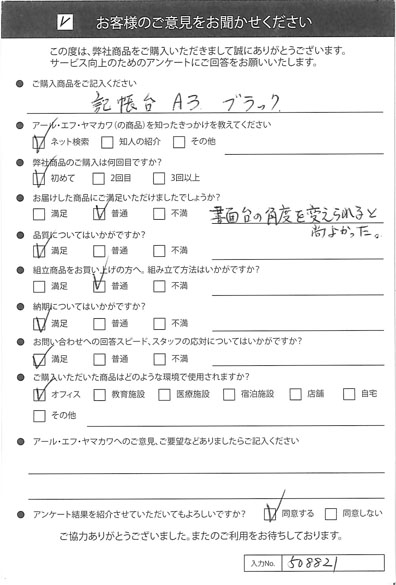 ☑ お客様のご意見をお聞かせください
この度は、弊社商品をご購入いただきまして誠にありがとうございます。
サービス向上のためのアンケートにご回答をお願いいたします。
● ご購入商品をご記入ください
記帳台 A3 ブラック
● アール・エフ・ヤマカワ(の商品)を知ったきっかけを教えてください
☑ ネット検索 □ 知人の紹介 □ その他
● 弊社商品のご購入は何回目ですか?
☑ 初めて □ 2回目 □ 3回以上
● お届けした商品にご満足いただけましたでしょうか?
□ 満足 ☑ 普通 □ 不満 書面台の角度を変えられると
尚よかった。
● 品質についてはいかがですか?
☑ 満足 □ 普通 □ 不満
● 組立商品をお買い上げの方へ。組み立て方法はいかがですか?
□ 満足 ☑ 普通 □ 不満
● 納期についてはいかがですか?
☑ 満足 □ 普通 □ 不満
● お問い合わせへの回答スピード、スタッフの応対についてはいかがですか?
☑ 満足 □ 普通 □ 不満
● ご購入いただいた商品はどのような環境で使用されますか?
☑ オフィス □ 教育施設 □ 医療施設 □ 宿泊施設 □ 店舗 □ 自宅
□ その他
● アール・エフ・ヤマカワへのご意見、ご要望などありましたらご記入ください
● アンケート結果を紹介させていただいてもよろしいですか? ☑ 同意する □ 同意しない
ご協力ありがとうございました。またのご利用をお待ちしております。
入力No. 508821